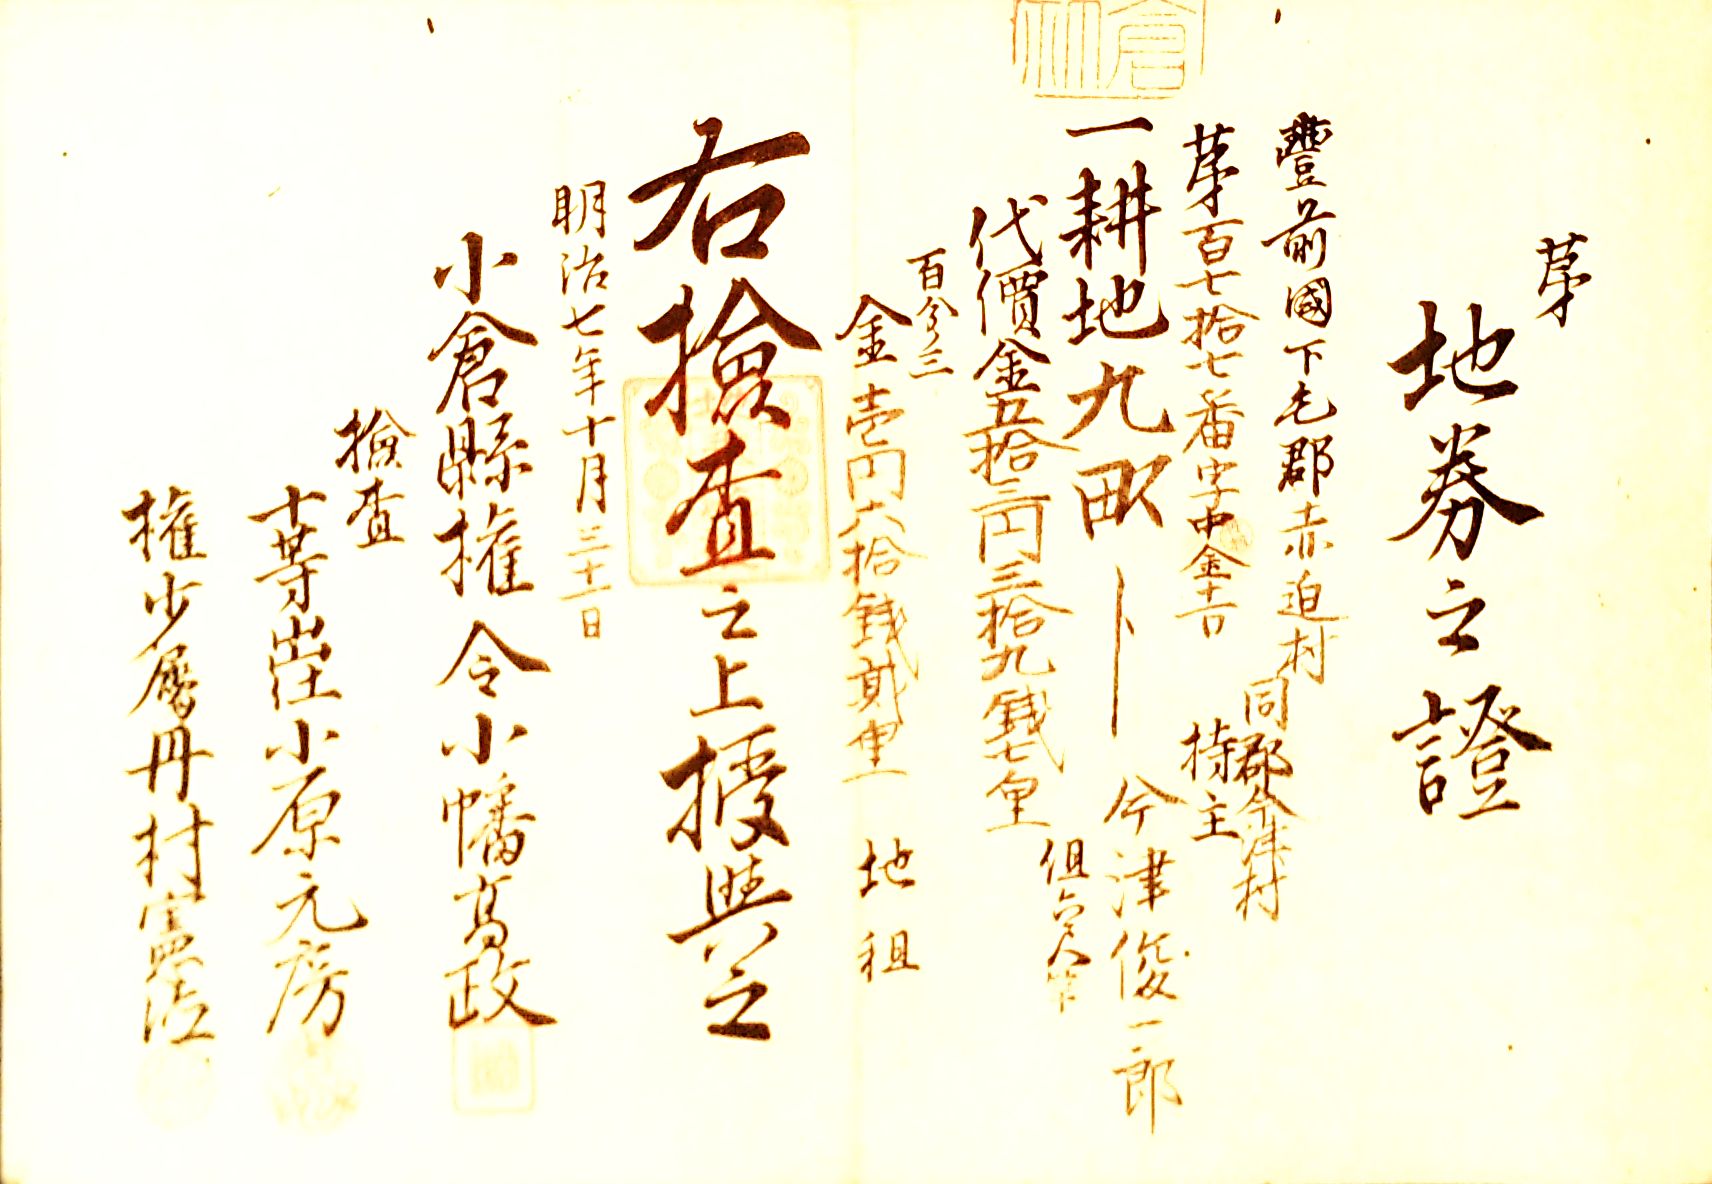 第
地券之證
豐前國下毛郡赤迫村
第百七拾七番字中金十一
同郡今津村
持主
一耕地九畝
今津俊一郎
代價金五拾三円三拾九錢七厘
但六尺竿
百分ノ三
金壱円六拾錢貳厘
地租
右撿査之上授與之
明治七年十月三十一日
小倉縣權令小幡高政
撿査
十等出仕小原元房
權少属丹村